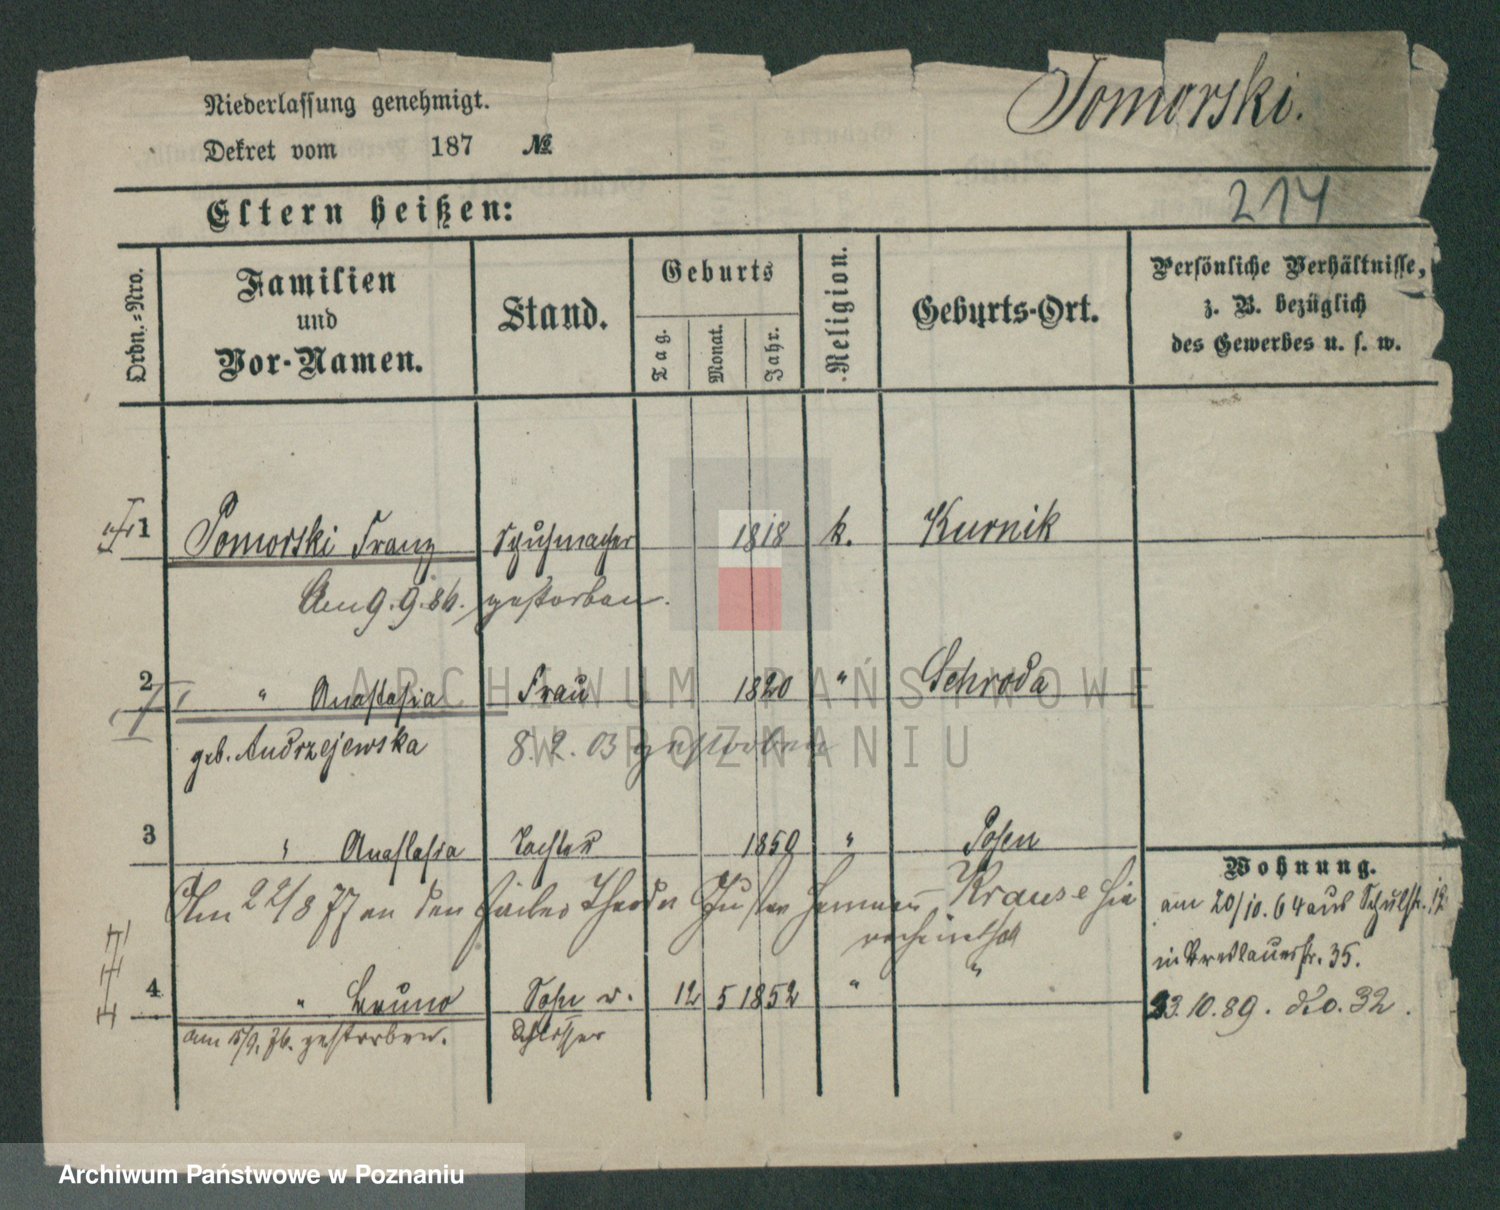 Niederlassung genehmigt.
Pomorski.
Dekret vom 187 №
214
Eltern heißen:
Ordn.-Nro.
Familien
und
Vor-Namen.
Stand.
Geburts
Tag.
Monat.
Jahr.
Religion.
Geburts-Ort.
Persönliche Verhältnisse,
z. B. bezüglich
des Gewerbes u. s. w.
1 Pomorski Franz Schuhmacher 1818 k. Kurnik
Am 9.9.86. gestorben.
2 " Anastasia Frau 1820 " Schroda
geb. Andrzejewska 8.2.03 gestorben
3 " Anastasia Tochter 1850 " Posen
Am 22/8 77 an den Theodor Gustav Hermann Krause hier
verheirathet
4 " Bruno Sohn u. 12 5 1852 " "
am 15/9. 76. gestorben. Schlosser
Wohnung.
am 20/10. 64 aus Schulstr. 12
in Breslauerstr. 35.
23.10.89. do. 32.
ARCHIWUM PAŃSTWOWE
W POZNANIU
Archiwum Państwowe w Poznaniu